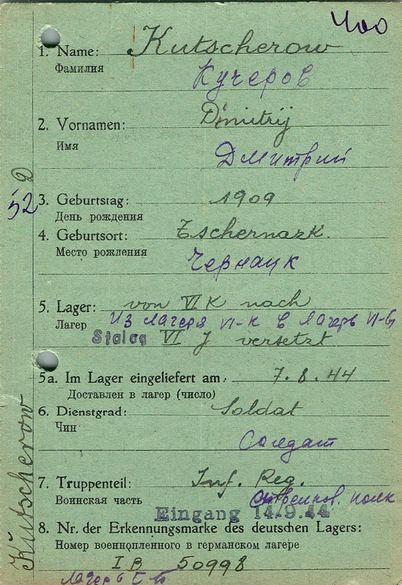 400
1. Name: Kutscherow
Фамилия
Кучеров
2. Vornamen: Dmitrij
Имя
Дмитрий
3. Geburtstag: 1909
День рождения
4. Geburtsort: Tschernazk.
Место рождения
Чернацк
5. Lager: von VI K nach
Лагер Из лагеря VI-К в лагерь VI-
Stalag VI J versetzt
5a. Im Lager eingeliefert am: 7.8.44
Доставлен в лагер (число)
6. Dienstgrad: Soldat
Чин
Солдат
7. Truppenteil: Inf. Reg.
Воинская часть полк
Eingang 14/9.44
8. Nr. der Erkennungsmarke des deutschen Lagers:
Номер военнопленного в германском лагере
I B 50998
Лагерь
Kutscherow
52 D